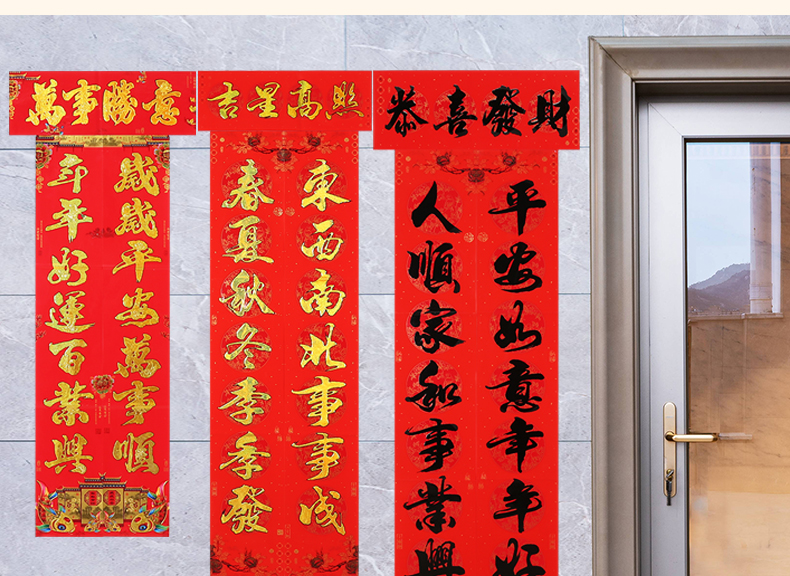 萬事勝意
歲歲平安萬事順
年年好運百業興
吉星高照
東西南北事事成
春夏秋冬季季發
恭喜發財
平安如意年年好
人順家和事業興